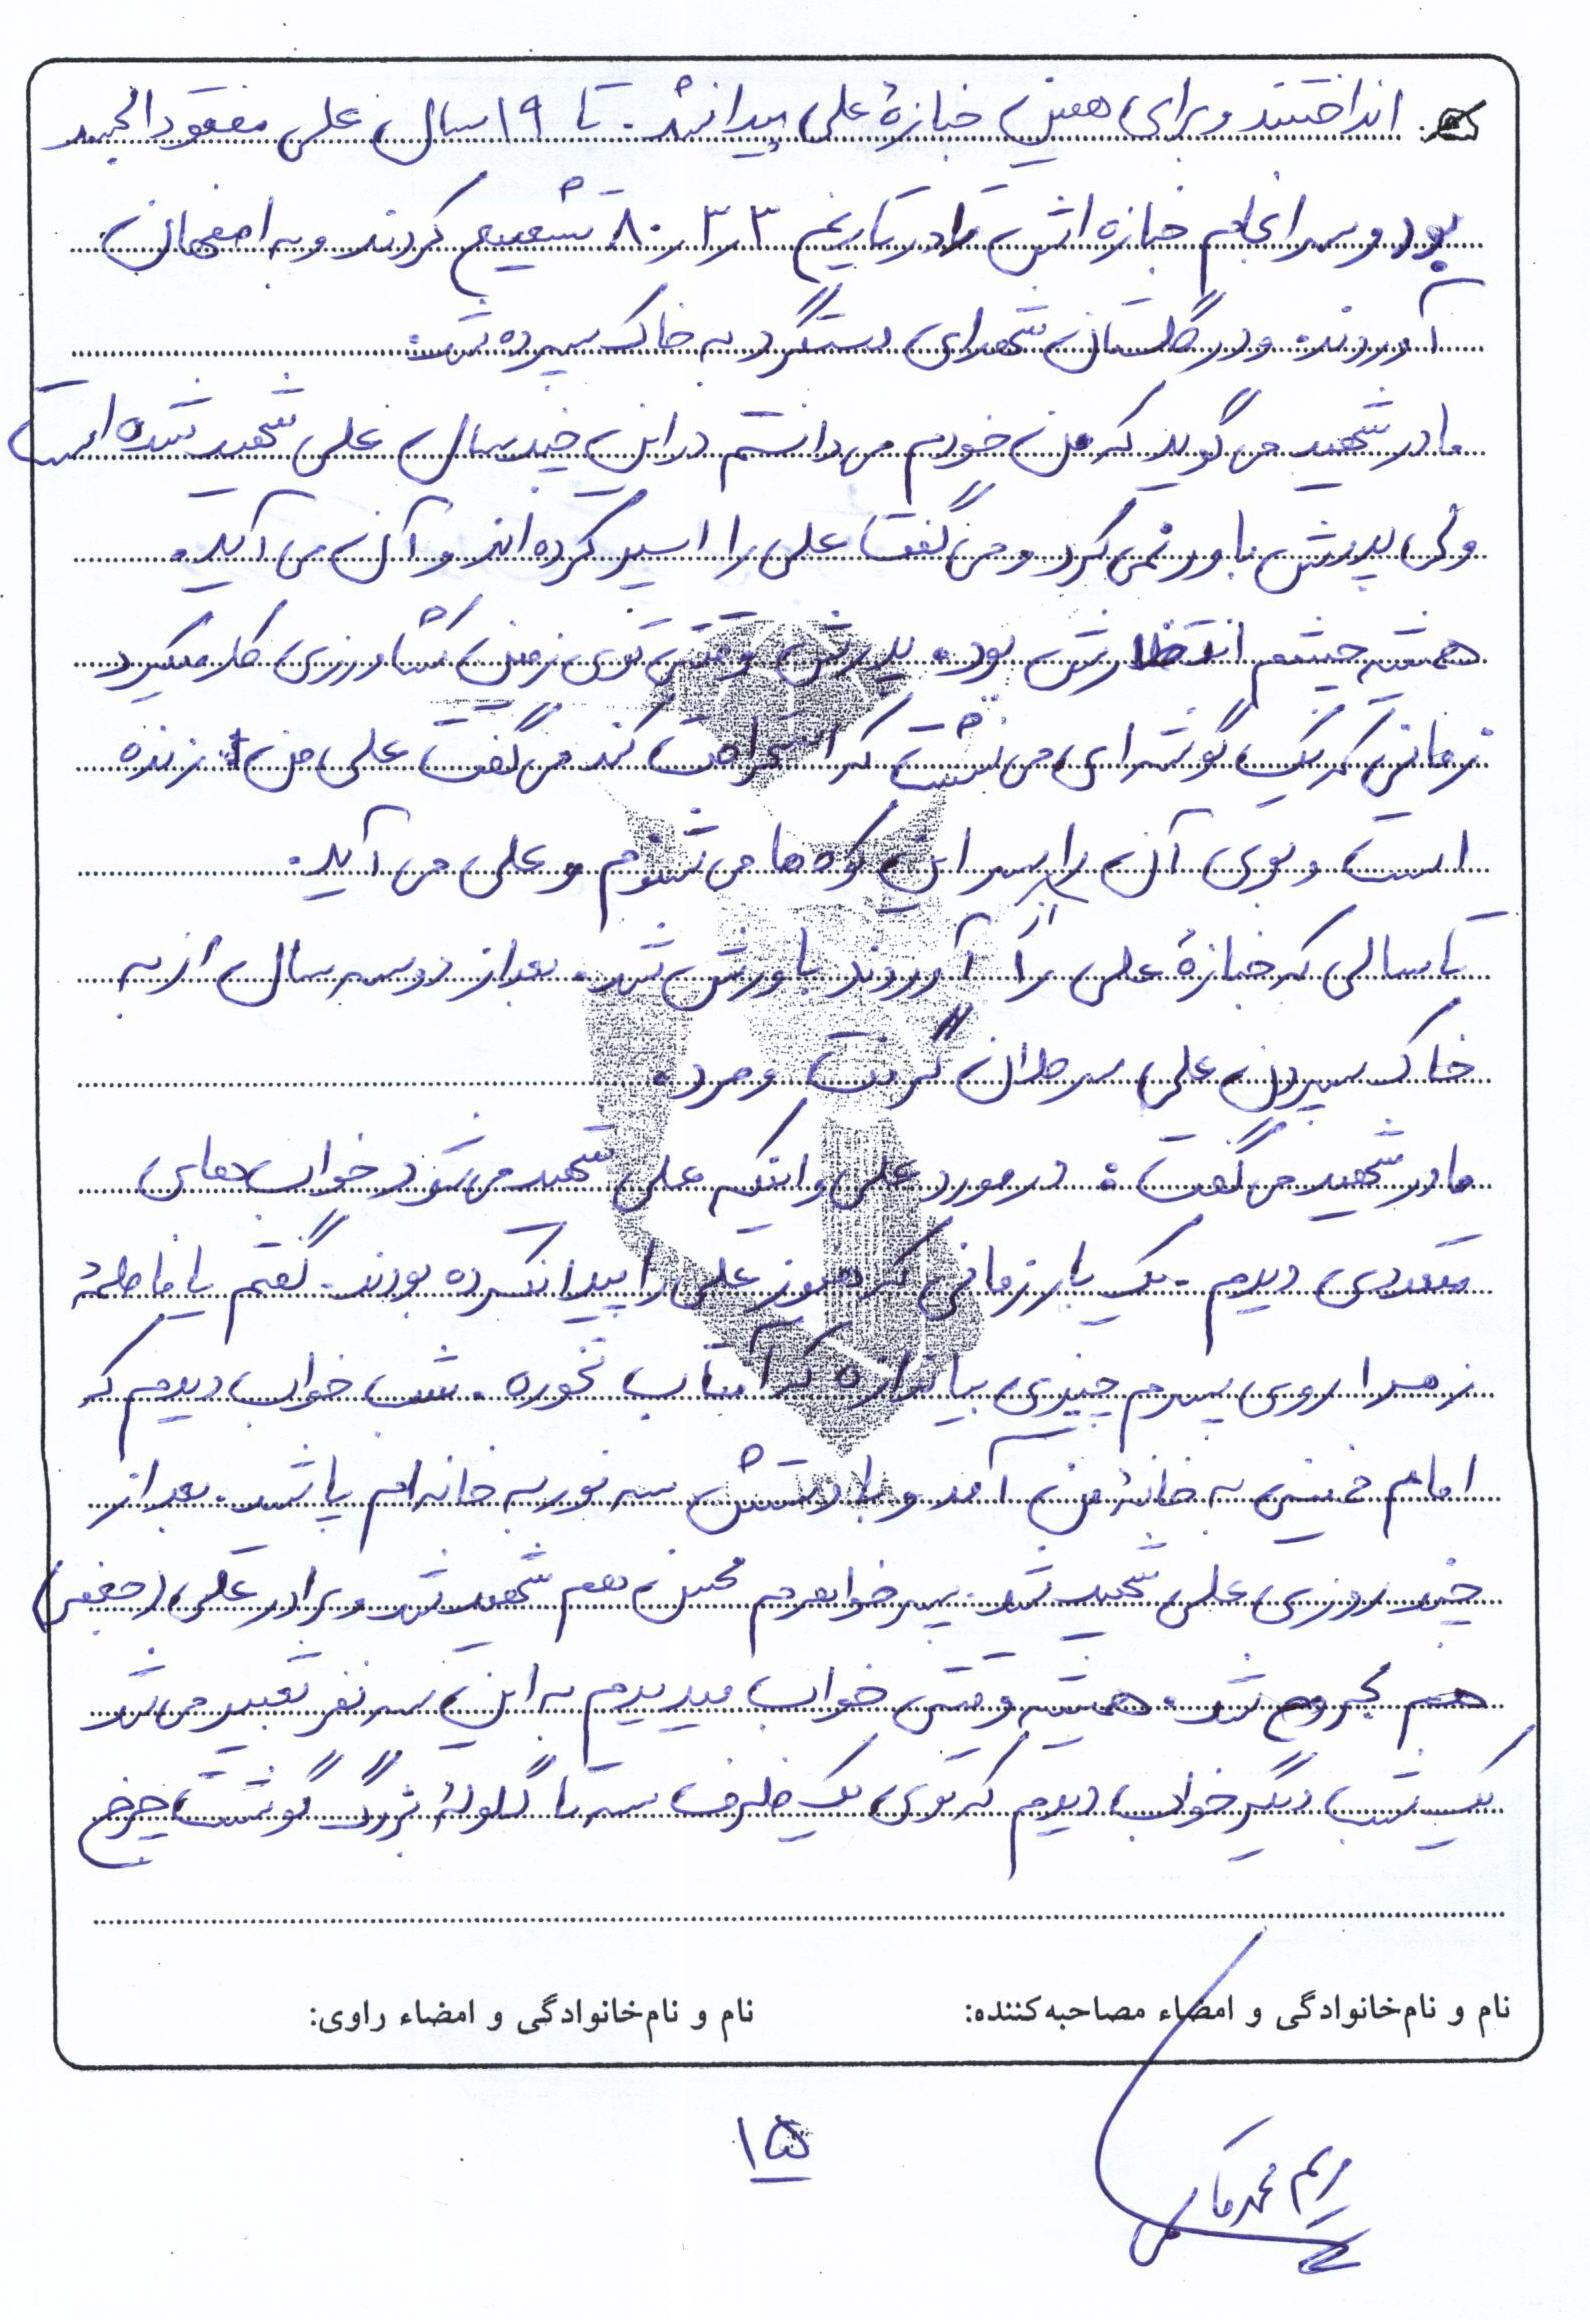 انداختند و برای همین جنازهٔ علی پیدا نشد. تا ۱۹ سال علی مفقودالجسد
بود و سرانجام جنازه اش را در تاریخ ۸۰٫۳٫۳ تشییع کردند و به اصفهان
آوردند. و در گلستان شهدای دستگرد به خاک سپرده شد.
مادر شهید می گوید که من خودم می دانستم در این چند سال علی شهید شده است
ولی پدرش باور نمی کرد و می گفت علی را اسیر کرده اند و آن می آید.
همیشه چشم انتظارش بود. پدرش وقتی توی زمین کشاورزی کار میکرد
زمانی که یک گوشه ای می نشست که استراحت کند می گفت علی من زنده
است و بوی آن را از سر این کوه ها می شنوم و علی می آید.
تا سالی که جنازهٔ علی را آوردند باورش شد. بعد از دو سه سال از به
خاک سپردن علی سرطان گرفت و مرد.
مادر شهید می گفت: در مورد علی و اینکه علی شهید می شود خواب های
متعددی دیدم. یک بار زمانی که هنوز علی را پیدا نکرده بودند. گفتم یا فاطمهٔ
زهرا روی پسرم چیزی بیاندازه که آفتاب نخوره. شب خواب دیدم که
امام خمینی به خانهٔ من آمد و با دستش سه نور به خانه ام پاشید. بعد از
چند روزی علی شهید شد. پسر خواهرم محسن هم شهید شد و برادر علی (جعفر)
هم مجروح شد. همیشه وقتی خواب میدیدم به این سه نفر تعبیر می شد
یک شب دیگر خواب دیدم که توی یک ظرف سه تا گلولهٔ بزرگ گوشت چرخ
نام و نام‌خانوادگی و امضاء مصاحبه‌کننده:
نام و نام‌خانوادگی و امضاء راوی:
۱۵